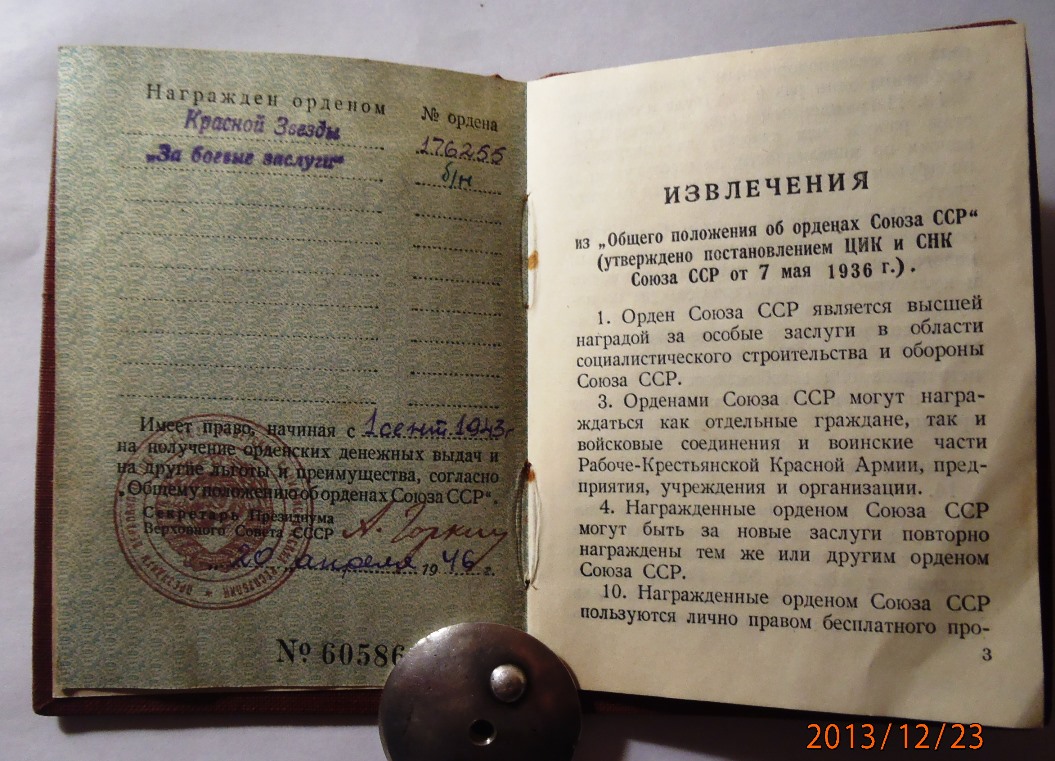 Награжден орденом
№ ордена
Красной Звезды
176255
„За боевые заслуги“
б/н
Имеет право, начиная с 1 сент 1943 г
на получение орденских денежных выдач и
на другие льготы и преимущества, согласно
„Общему положению об орденах Союза ССР“.
Секретарь Президиума
Верховного Совета СССР
А. Горкин
20 апреля 1946 г.
№ 60586
ИЗВЛЕЧЕНИЯ
из „Общего положения об орденах Союза ССР“
(утверждено постановлением ЦИК и СНК
Союза ССР от 7 мая 1936 г.).
1. Орден Союза ССР является высшей
наградой за особые заслуги в области
социалистического строительства и обороны
Союза ССР.
3. Орденами Союза ССР могут награ-
ждаться как отдельные граждане, так и
войсковые соединения и воинские части
Рабоче-Крестьянской Красной Армии, пред-
приятия, учреждения и организации.
4. Награжденные орденом Союза ССР
могут быть за новые заслуги повторно
награждены тем же или другим орденом
Союза ССР.
10. Награжденные орденом Союза ССР
пользуются лично правом бесплатного про-
3
2013/12/23